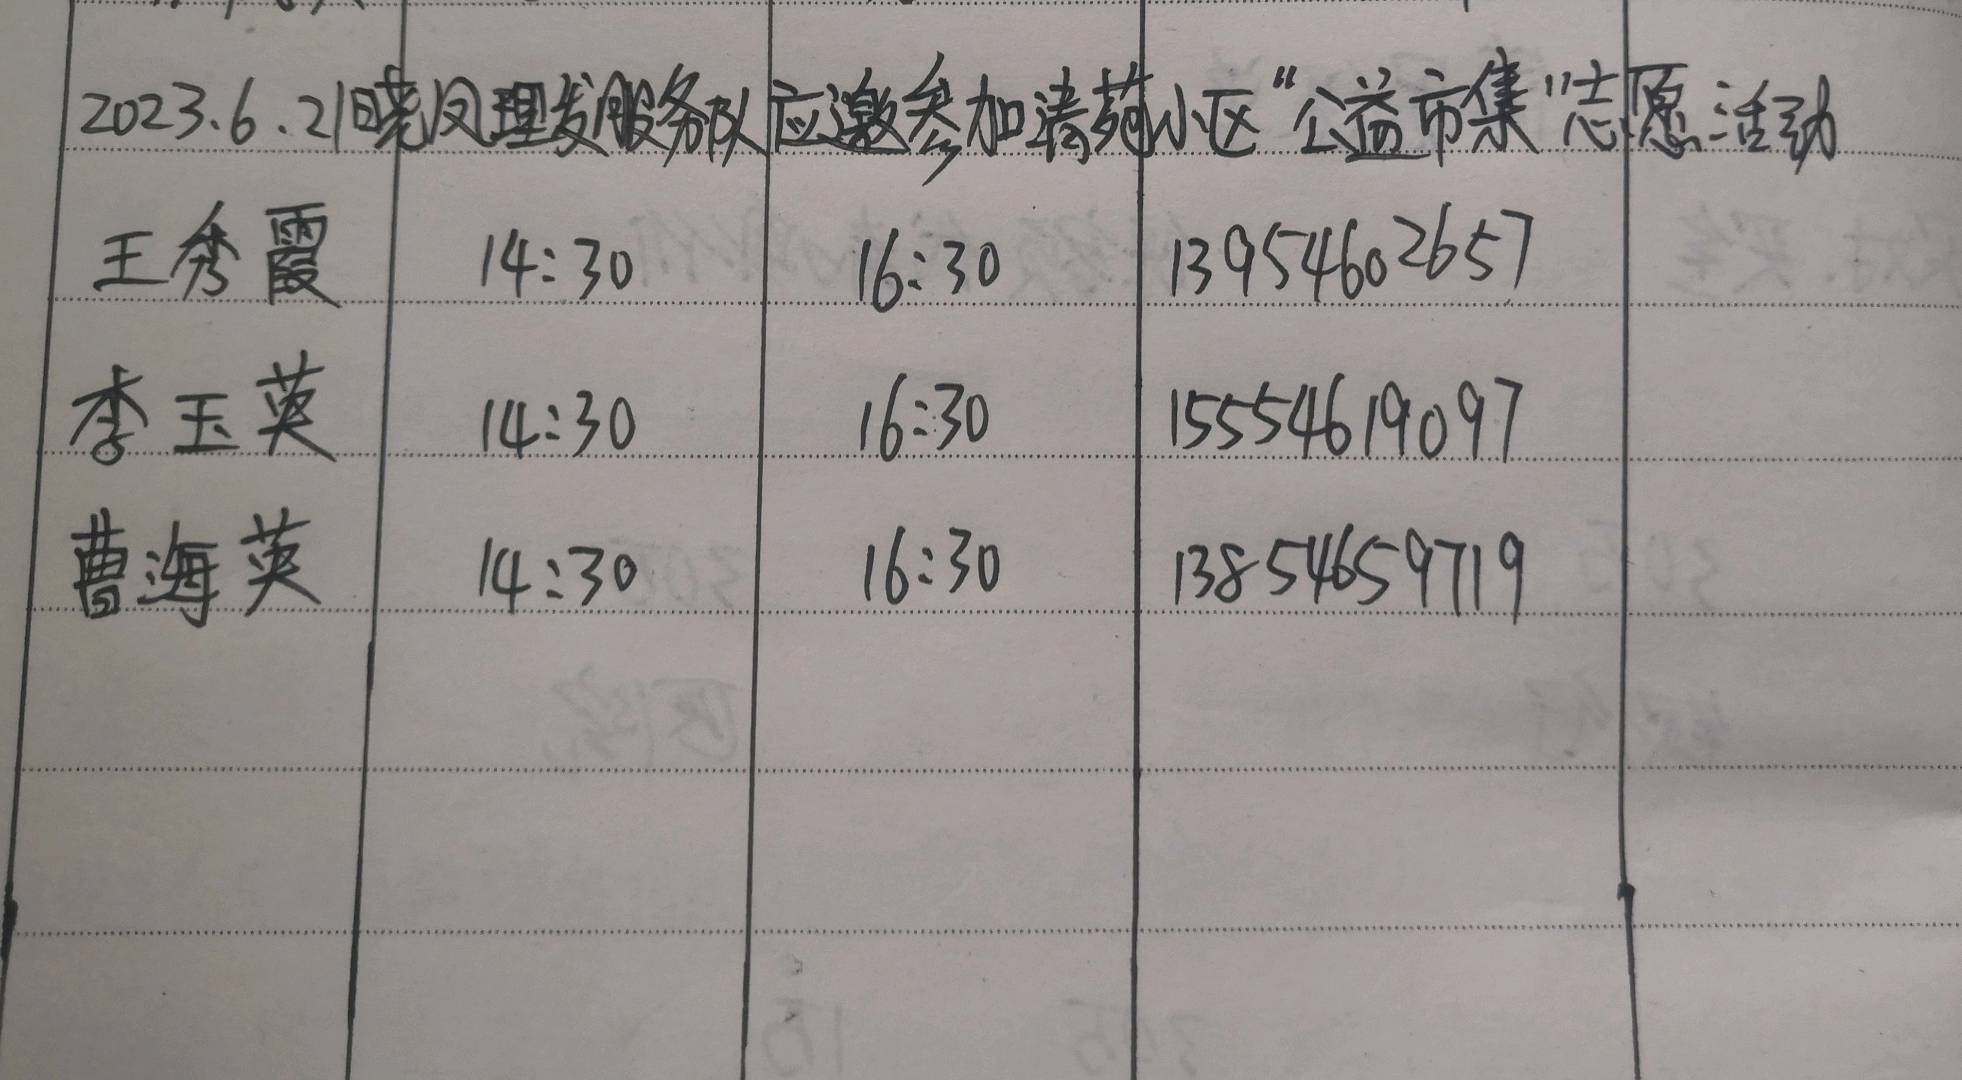 2023.6.21晓凤理发服务队应邀参加清苑小区“公益市集”志愿活动
王秀霞 14:30 16:30 13954602657
李玉英 14:30 16:30 15554619097
曹海英 14:30 16:30 13854659719